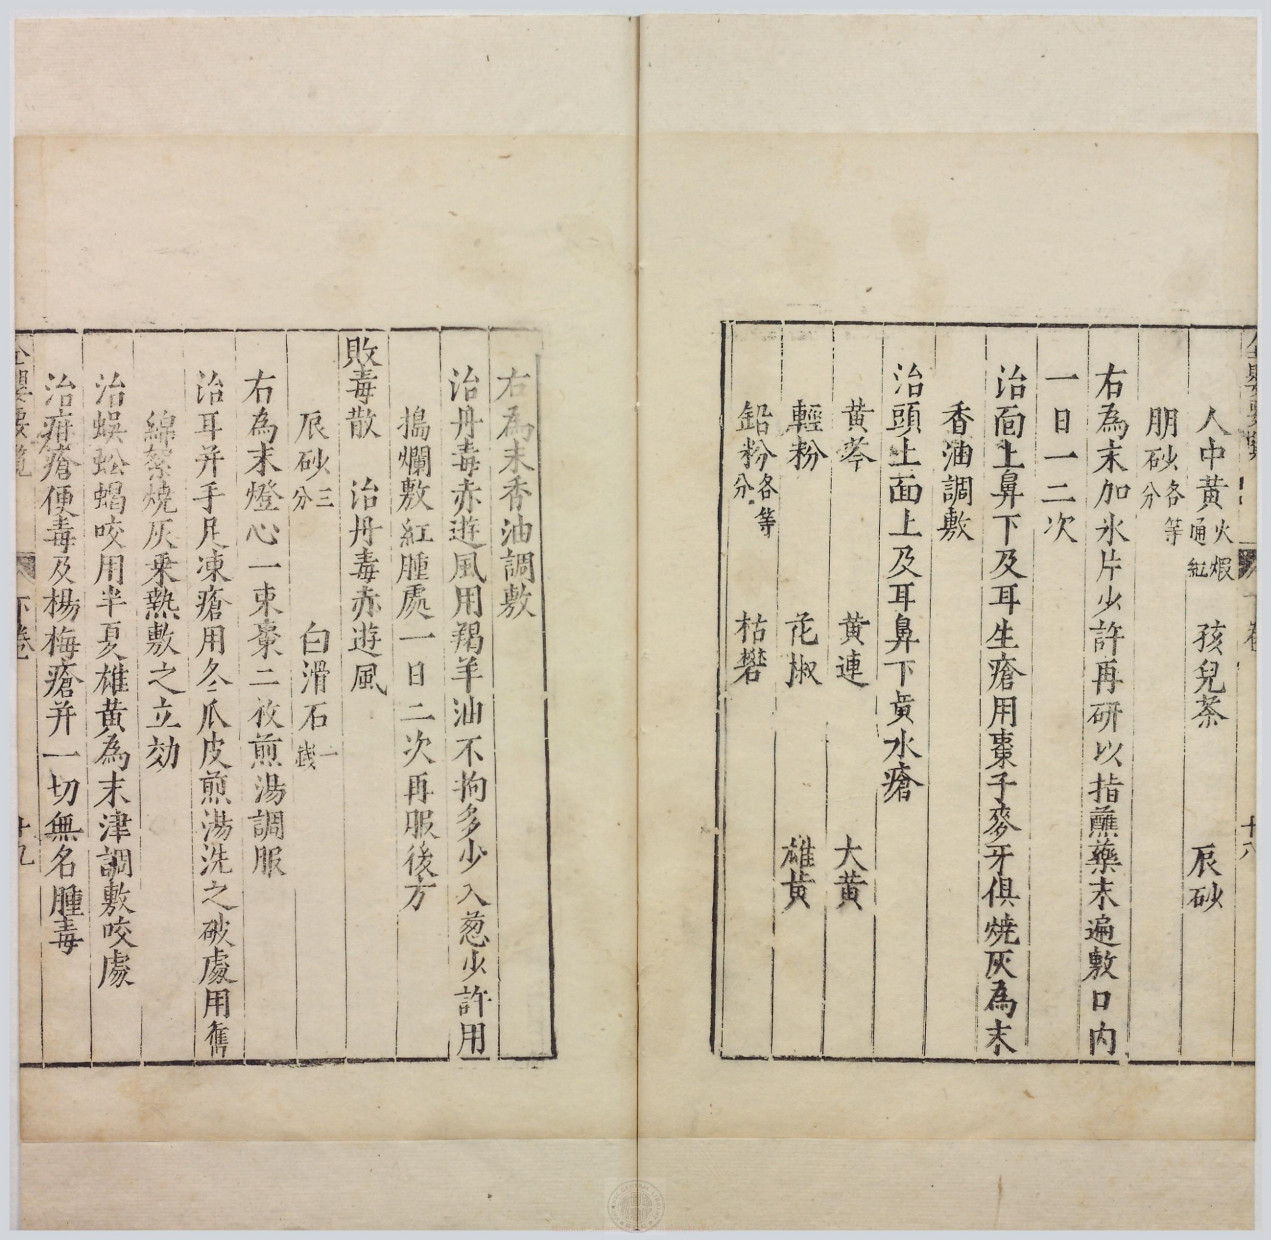 人中黃火煅通紅 孩兒茶 辰砂
朋砂各等分
右為末加氷片少許再研以指蘸藥末遍敷口內
一日一二次
治面上鼻下及耳生瘡用棗子麥牙俱燒灰為末
香油調敷
治頭上面上及耳鼻下黃水瘡
黃芩 黃連 大黃
輕粉 花椒 雄黃
鉛粉各等分 枯礬
右為末香油調敷
治丹毒赤遊風用羯羊油不拘多少入葱少許用
搗爛敷紅腫處一日二次再服後方
敗毒散 治丹毒赤遊風
辰砂三分 白滑石一錢
右為末燈心一束棗二枚煎湯調服
治耳并手足凍瘡用冬瓜皮煎湯洗之破處用舊
綿絮燒灰乗熱敷之立効
治蜈蚣蝎咬用半夏雄黃為末津調敷咬處
治疳瘡便毒及楊梅瘡并一切無名腫毒